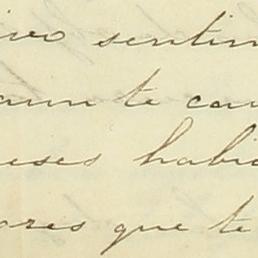 ivo sentim
aun te cau
eses habia
ores que te